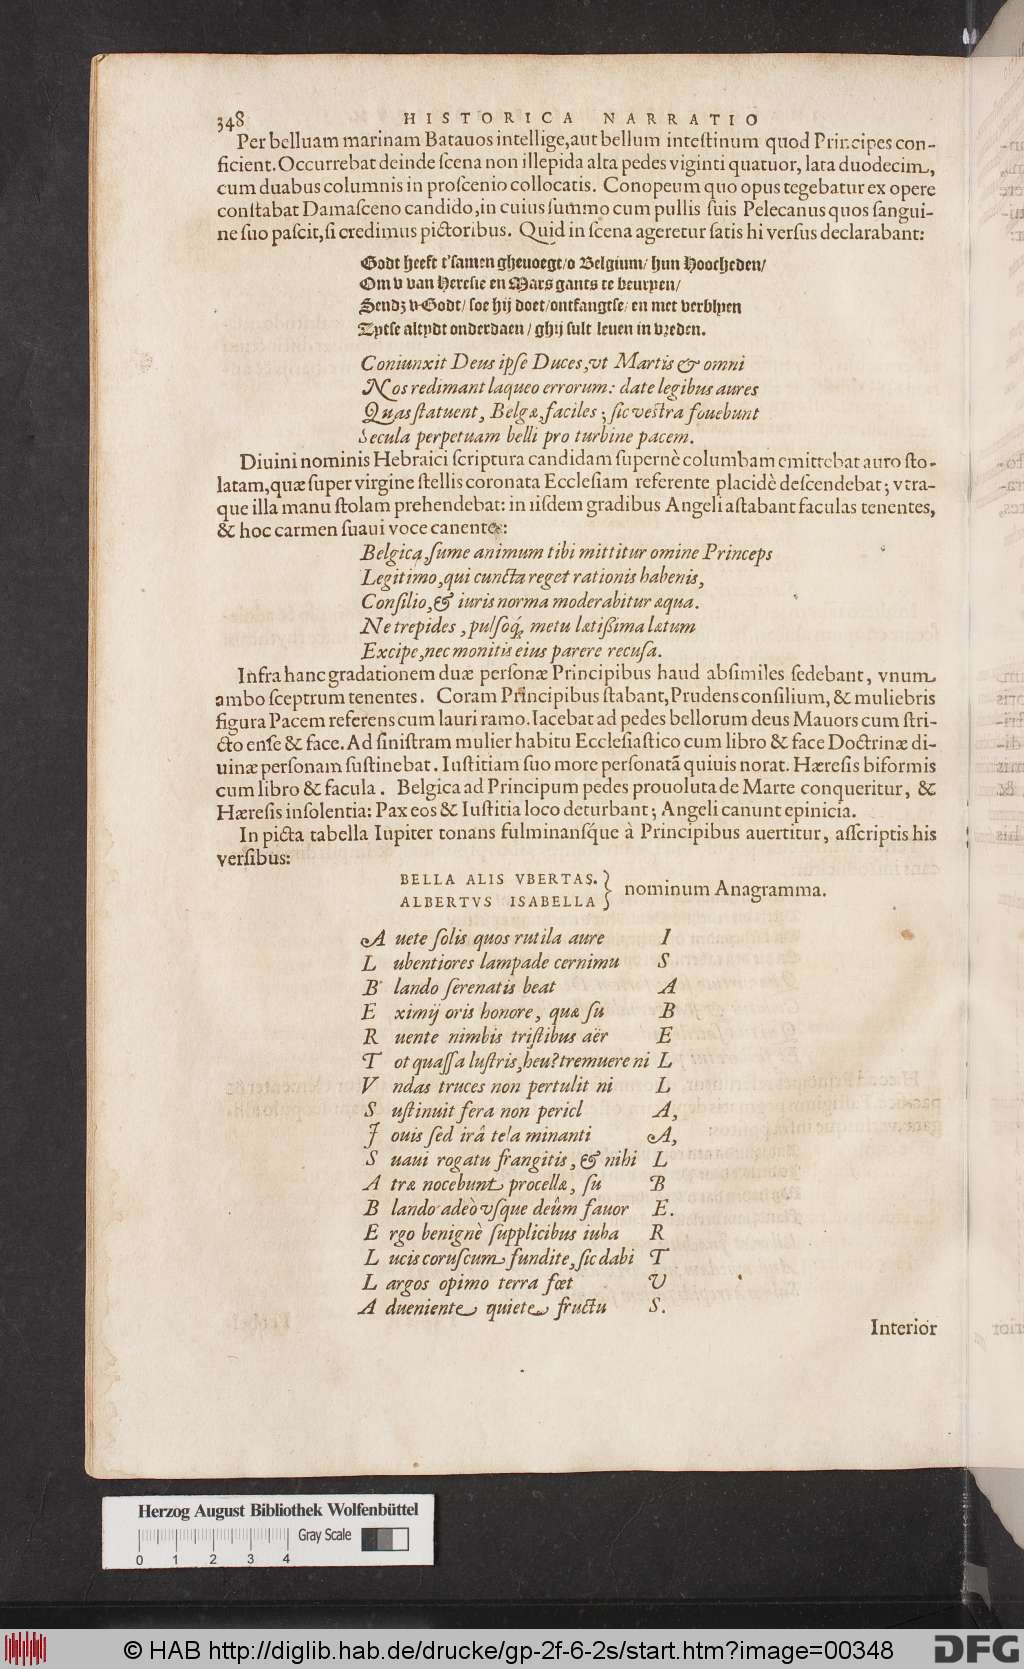 348 HISTORICA NARRATIO
Per belluam marinam Batauos intellige, aut bellum inteſtinum quod Principes con-
ficient. Occurrebat deinde ſcena non illepida alta pedes viginti quatuor, lata duodecim,
cum duabus columnis in proſcenio collocatis. Conopeum quo opus tegebatur ex opere
conſtabat Damaſceno candido, in cuius ſummo cum pullis ſuis Pelecanus quos ſangui-
ne ſuo paſcit, ſi credimus pictoribus. Quid in ſcena ageretur ſatis hi verſus declarabant:
Godt heeft t'ſamen gheuoegt/ o Belgium/ hun Hoocheden/
Om v van Hereſie en Mars gants te beuryen/
Sendz v Godt/ ſoe hij doet/ ontfangtſe/ en met verblyen
Tytſe altydt onderdaen/ ghij ſult leuen in vreden.
Coniunxit Deus ipſe Duces, vt Martis & omni
Nos redimant laqueo errorum: date legibus aures
Quas ſtatuent, Belgæ, faciles; ſic veſtra fouebunt
Secula perpetuam belli pro turbine pacem.
Diuini nominis Hebraici ſcriptura candidam ſupernè columbam emittebat auro ſto-
latam, quæ ſuper virgine ſtellis coronata Eccleſiam referente placidè deſcendebat; vtra-
que illa manu ſtolam prehendebat: in iiſdem gradibus Angeli aſtabant faculas tenentes,
& hoc carmen ſuaui voce canentes:
Belgica, ſume animum tibi mittitur omine Princeps
Legitimo, qui cuncta reget rationis habenis,
Conſilio, & iuris norma moderabitur æqua.
Ne trepides, pulſoq́; metu lætißima lætum
Excipe, nec monitis eius parere recuſa.
Infra hanc gradationem duæ perſonæ Principibus haud abſimiles ſedebant, vnum
ambo ſceptrum tenentes. Coram Principibus ſtabant, Prudens conſilium, & muliebris
figura Pacem referens cum lauri ramo. Iacebat ad pedes bellorum deus Mauors cum ſtri-
cto enſe & face. Ad ſiniſtram mulier habitu Eccleſiaſtico cum libro & face Doctrinæ di-
uinæ perſonam ſuſtinebat. Iuſtitiam ſuo more perſonatã quiuis norat. Hæreſis biformis
cum libro & facula. Belgica ad Principum pedes prouoluta de Marte conqueritur, &
Hæreſis inſolentia: Pax eos & Iuſtitia loco deturbant; Angeli canunt epinicia.
In picta tabella Iupiter tonans fulminanſq́ue à Principibus auertitur, aſſcriptis his
verſibus:
BELLA ALIS VBERTAS.
ALBERTVS ISABELLA } nominum Anagramma.
A uete ſolis quos rutila aure I
L ubentiores lampade cernimu S
B lando ſerenatis beat A
E ximij oris honore, quæ ſu B
R uente nimbis triſtibus aër E
T ot quaſſa luſtris, heu? tremuere ni L
V ndas truces non pertulit ni L
S uſtinuit fera non pericl A,
I ouis ſed irâ tela minanti A,
S uaui rogatu frangitis, & nihi L
A træ nocebunt procellæ, ſu B
B lando adeò vſque deûm fauor E.
E rgo benignè ſupplicibus iuba R
L ucis coruſcum fundite, ſic dabi T
L argos opimo terra fœt V
A dueniente quiete fructu S.
Interior
Herzog August Bibliothek Wolfenbüttel
Gray Scale
0 1 2 3 4
© HAB http://diglib.hab.de/drucke/gp-2f-6-2s/start.htm?image=00348
DFG